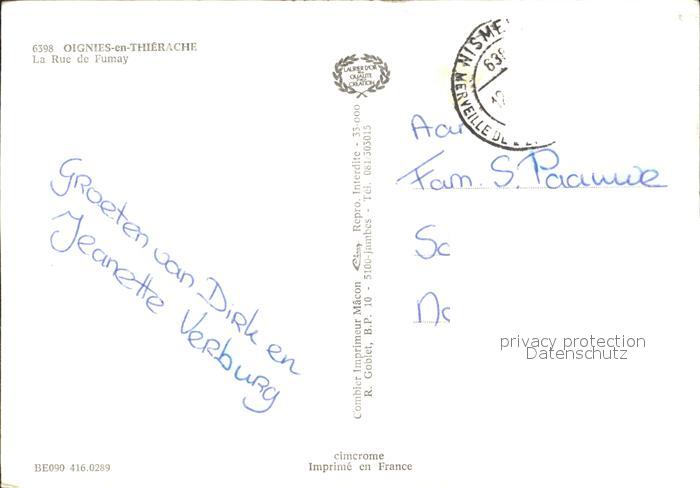 6398 OIGNIES-en-THIÉRACHE
La Rue de Fumay
LAURIER D'OR
DE LA QUALITÉ
CREATION
NISME
638
MERVEILLE DE
Aan
Fam. S. Paauwe
Sc
No
Groeten van Dirk en
Jeanette Verburg
Combier Imprimeur Mâcon Cim Repro. Interdite - 33-000
R. Goblet, B.P. 10 - 5100-Jambes - Tél. 081/303015
privacy protection
Datenschutz
BE090 416.0289
cimcrome
Imprimé en France